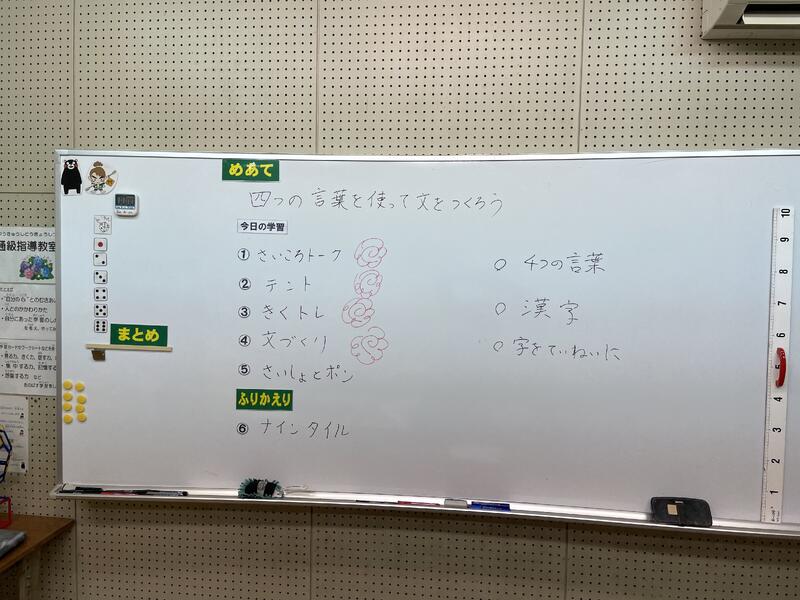 めあて
四つの言葉を使って文をつくろう
今日の学習
① さいころトーク
② テント
③ きくトレ
④ 文づくり
⑤ さいしょとポン
ふりかえり
⑥ ナインタイル
○ 4つの言葉
○ 漢字
○ 字をていねいに
まとめ
通級指導教室
・人とのかかわりかた
10
9
8
7
6
5
4
3
2
1